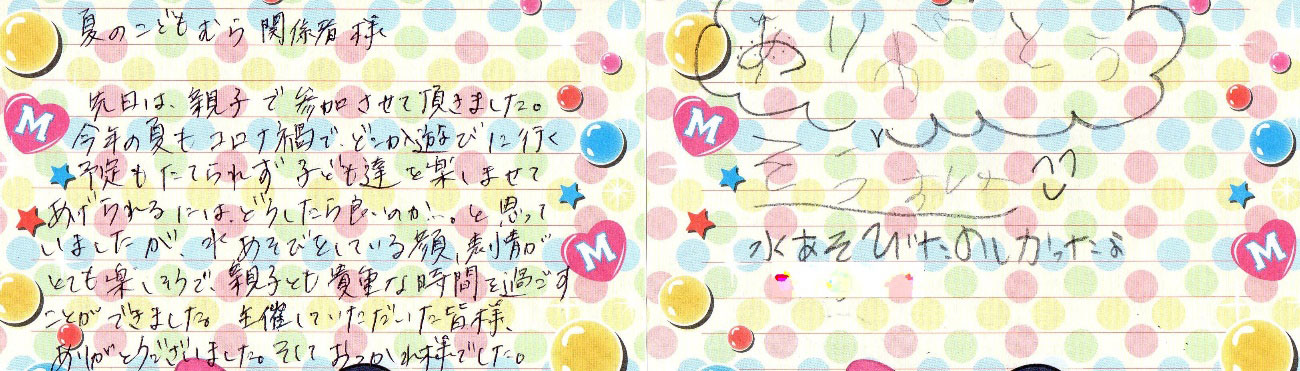 夏のこどもむら 関係者 様
先日は、親子で参加させて頂きました。
今年の夏もコロナ禍で、どこか遊びに行く
予定もたてられず子ども達を楽しませて
あげられるには、どうしたら良いのか…。と思って
いましたが、水あそびをしている顔、表情が
とても楽しそうで、親子とも貴重な時間を過ごす
ことができました。主催していただいた皆様、
ありがとうございました。そしておつかれ様でした。
ありがとう
水あそびたのしかったよ
M
M
M
M